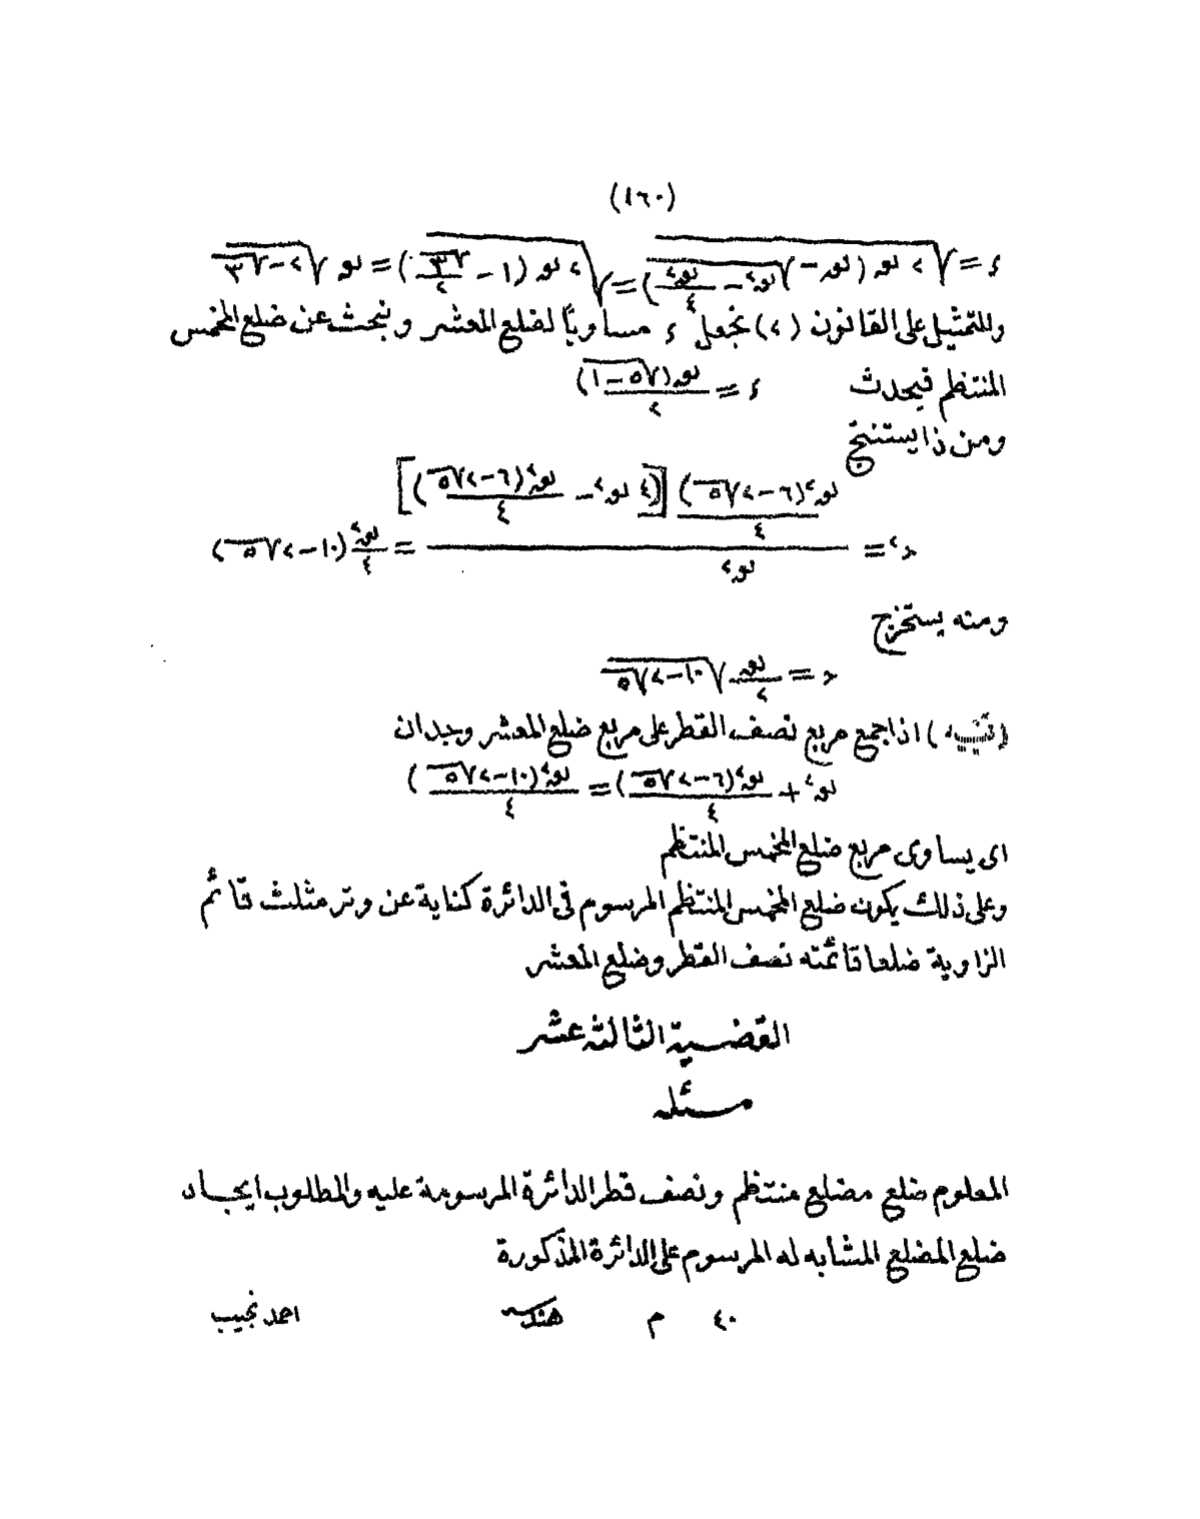 (١٦٠)
ء = √(٢ نوہ (نوہ - √(نوہ٢ - نوہ٢/٤))) = √(٢ نوہ٢ (١ - √٣/٢)) = نوہ √(٢ - √٣)
وللتمثيل على القانون (٢) نجعل ء مساويًا لضلع المعشر ونبحث عن ضلع المخمس
المنتظم فيحدث ء = نوہ(√٥ - ١)/٢
ومن ذا يستنتج
حـ٢ = نوہ٢(٦ - ٢√٥)/٤ [(٤ نوہ٢ - نوہ٢(٦ - ٢√٥)/٤)] / نوہ٢ = نوہ٢/٤ (١٠ - ٢√٥)
ومنه يستخرج
حـ = نوہ/٢ √(١٠ - ٢√٥)
(تنبيه) اذا جمع مربع نصف القطر على مربع ضلع المعشر وجد ان
نوہ٢ + نوہ٢(٦ - ٢√٥)/٤ = نوہ٢(١٠ - ٢√٥)/٤
اى يساوى مربع ضلع المخمس المنتظم
وعلى ذلك يكون ضلع المخمس المنتظم المرسوم فى الدائرة كناية عن وتر مثلث قائم
الزاوية ضلعا قائمته نصف القطر وضلع المعشر
القضية الثالثة عشر
مسئله
المعلوم ضلع مضلع منتظم ونصف قطر الدائرة المرسومة عليه والمطلوب ايجاد
ضلع المضلع المشابه له المرسوم على الدائرة المذكورة
٤٠ م هندسه احمد نجيب